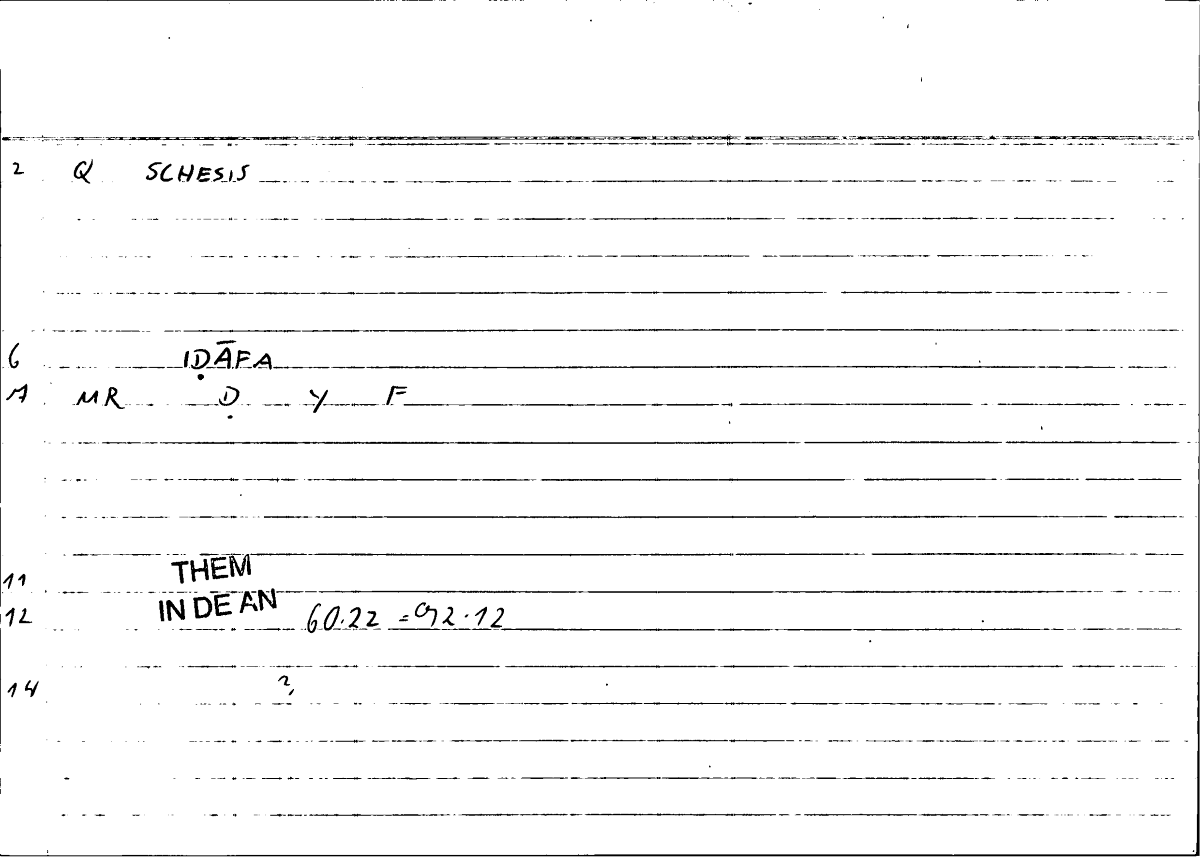 2 Q SCHESIS
6 IḌĀFA
A MR Ḍ Y F
11 THEM
12 IN DE AN 60.22 = 92.12
14 ?